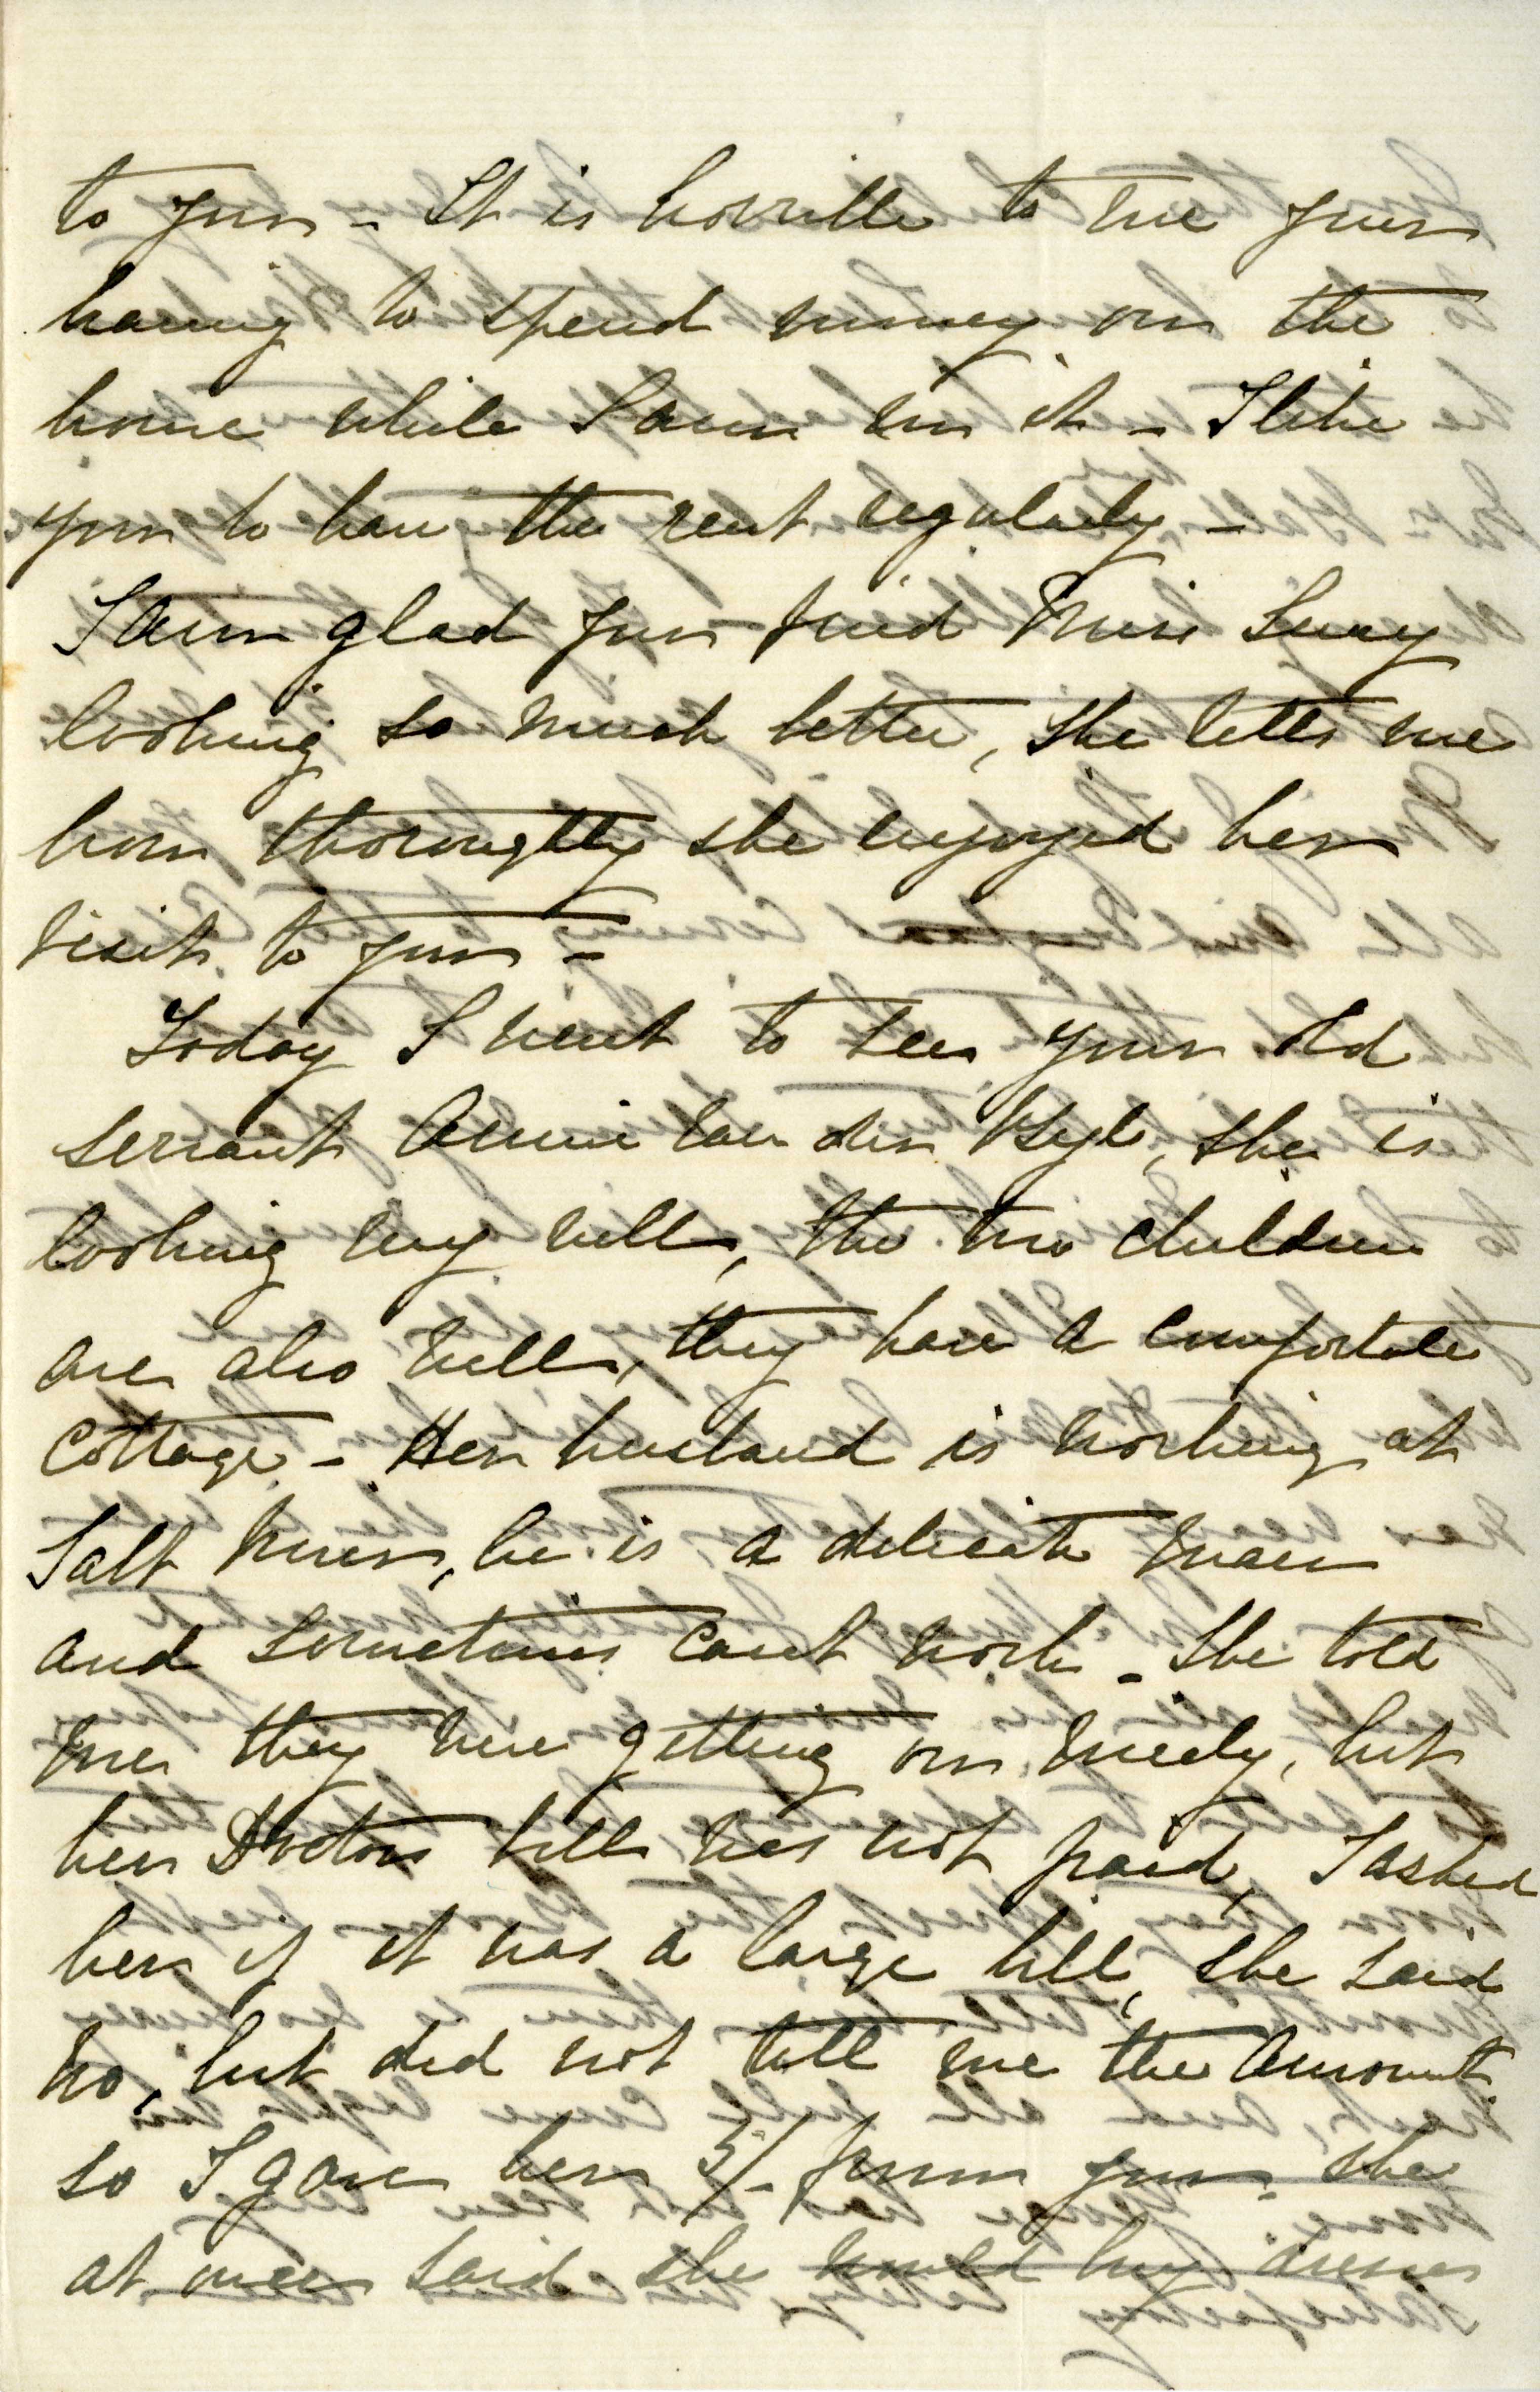 to you - It is horrible to me your
having to spend money on the
house while I am in it - I like
you to have the rent regularly -
I am glad you find Miss Lucy
looking so much better, she tells me
how thoroughly she enjoyed her
visit to you -
Today I went to see your old
servant Annie van der Byl, she is
looking very well, the two children
are also well, they have a comfortable
cottage - Her husband is working at
Salt River, he is a delicate man
and sometimes cant work - She told
me they were getting on nicely, but
her Doctors bill was not paid, I asked
her if it was a large bill, she said
no, but did not tell me the amount.
so I gave her 5/- from you - she
at once said she would buy dresses